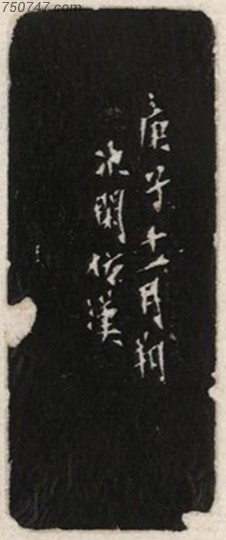 750747.com
庚子十一月朔
次閑仿漢